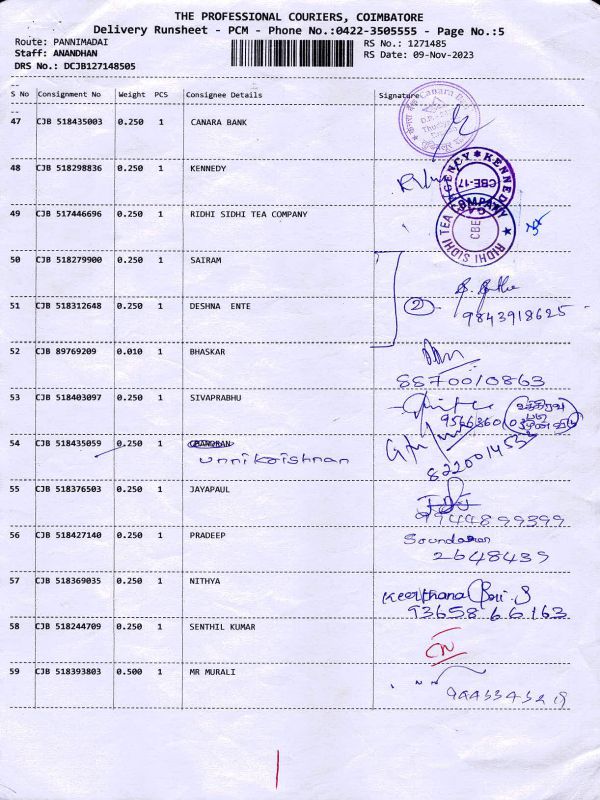 THE PROFESSIONAL COURIERS, COIMBATORE
Delivery Runsheet - PCM - Phone No.:0422-3505555 - Page No.:5
Route: PANNIMADAI
RS No.: 1271485
Staff: ANANDHAN
RS Date: 09-Nov-2023
DRS No.: DCJB127148505
S No Consignment No Weight PCS Consignee Details Signature
47 CJB 518435003 0.250 1 CANARA BANK
Canara
48 CJB 518298836 0.250 1 KENNEDY
AGENCY ★ KENNEDY
CBE-17
49 CJB 517446696 0.250 1 RIDHI SIDHI TEA COMPANY
RIDHI SIDHI TEA COMPANY ★
CBE
50 CJB 518279900 0.250 1 SAIRAM
51 CJB 518312648 0.250 1 DESHNA ENTE
2
9843918625
52 CJB 89769209 0.010 1 BHASKAR
8870010863
53 CJB 518403097 0.250 1 SIVAPRABHU
54 CJB 518435059 0.250 1
unnikrishnan
55 CJB 518376503 0.250 1 JAYAPAUL
9944899399
56 CJB 518427140 0.250 1 PRADEEP
2648439
57 CJB 518369035 0.250 1 NITHYA
Keerthana
9365866163
58 CJB 518244709 0.250 1 SENTHIL KUMAR
CN
59 CJB 518393803 0.500 1 MR MURALI